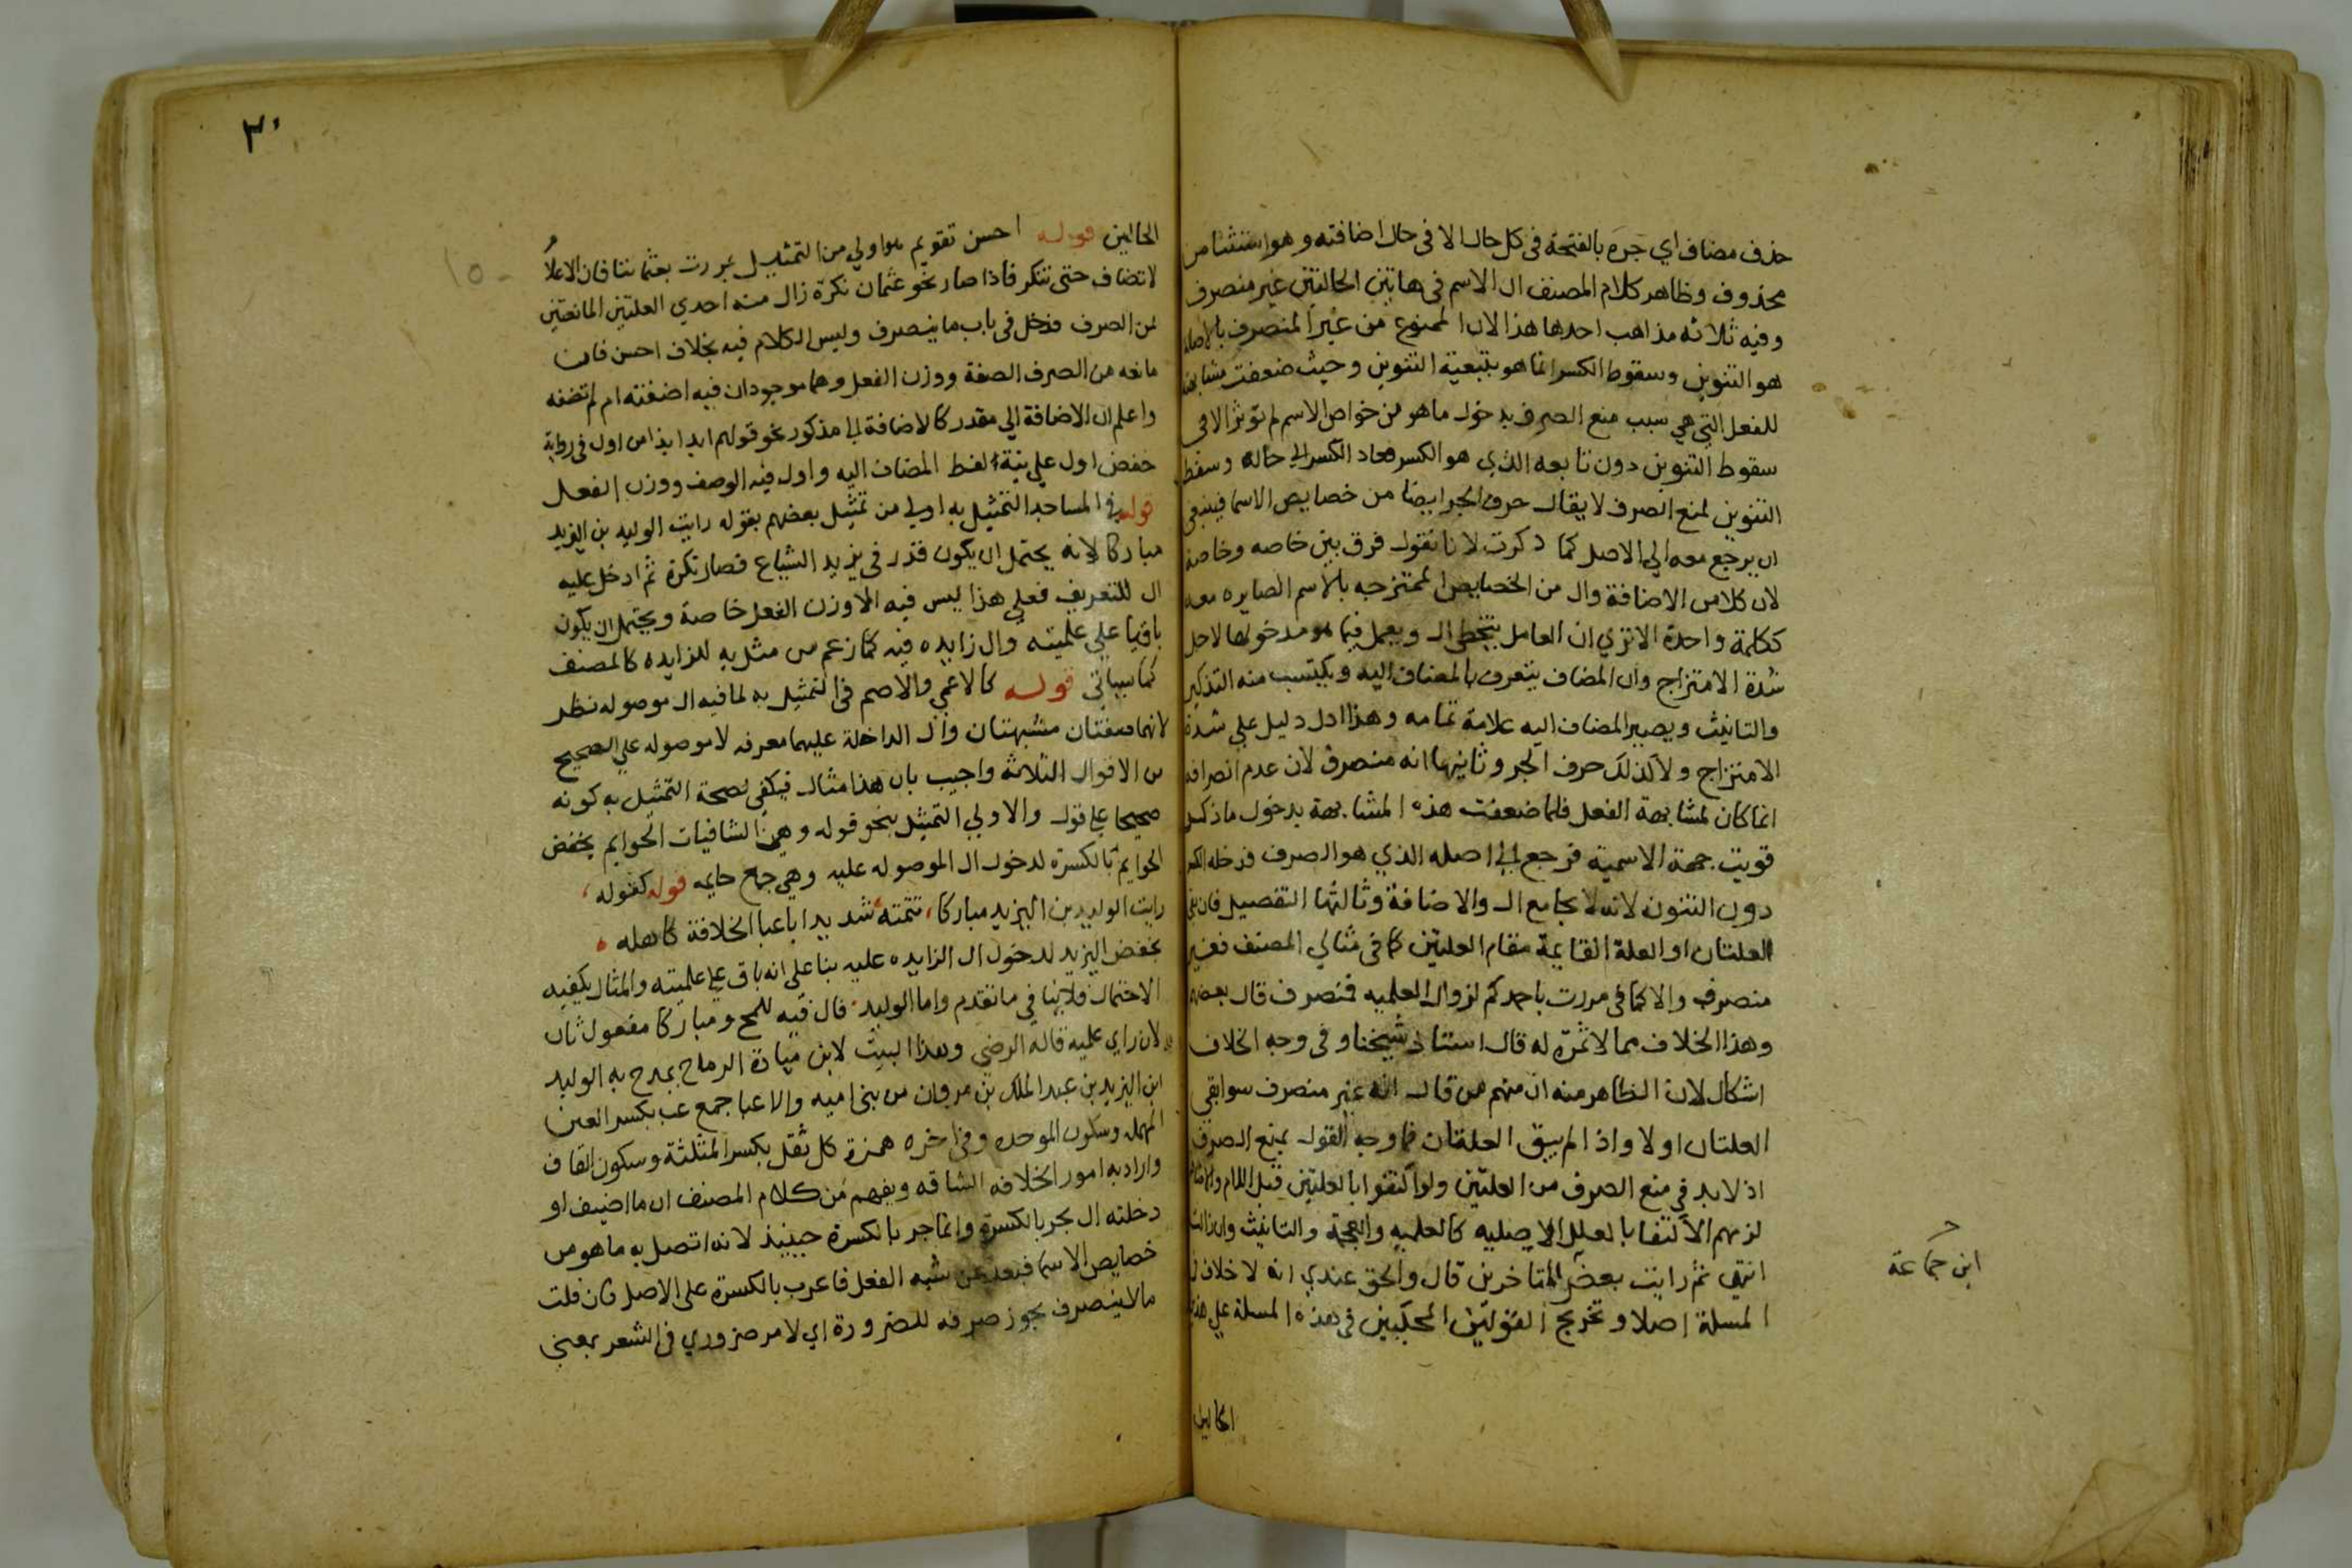 حذف مضاف اي جره بالفتحة فى كل حال الا فى حال اضافته وهو استثنا من
محذوف وظاهر كلام المصنف ان الاسم فى هاتين الحالتين غير منصرف
وفيه ثلاثه مذاهب احدها هذا لان الممنوع من غير المنصرف بالاصاله
هو التنوين وسقوط الكسر انما هو بتبعية التنوين وحيث ضعفت مشابهته
للفعل التي هي سبب منع الصرف بدخول ما هو من خواص الاسم لم تؤثر الا فى
سقوط التنوين دون تابعه الذي هو الكسر فعاد الكسر الي حاله وسقط
التنوين لمنع الصرف لا يقال حرف الجر ايضا من خصايص الاسما فينبغى
ان يرجع معه الي الاصل كما ذكرت لانا نقول فرق بين خاصه وخاصة
لان كلا من الاضافة وال من الخصايص الممتزجه بالاسم الصايره معه
ككلمة واحدة الا تري ان العامل يتخطى ال ويعمل فيما هو مدخولها لاجل
شدة الامتزاج وان المضاف يتعرف بالمضاف اليه ويكتسب منه التذكير
والتانيث ويصير المضاف اليه علامة تمامه وهذا ادل دليل علي شدة
الامتزاج ولا كذلك حرف الجر وثانيها انه منصرف لان عدم انصرافه
انما كان لمشابهة الفعل فلما ضعفت هذه المشابهة بدخول ما ذكر
قويت جهة الاسمية فرجع الي اصله الذي هو الصرف فدخله الكسر
دون التنون لانه لا يجامع ال والاضافة وثالثها التفصيل فان بقي
العلتان او العلة القايمة مقام العلتين كما فى مثالي المصنف فغير
منصرف والا كما فى مررت باحمدكم لزوال العلميه فنصرف قال بعضهم
وهذا الخلاف مما لا ثمرة له قال استاذ شيخنا وفى وجه الخلاف
اشكال لان الظاهر منه ان منهم من قال انه غير منصرف سوا بقى
العلتان اولا واذا لم يبق العلتان فما وجه القول بمنع الصرف
اذ لا بد فى منع الصرف من العلتين ولو اكتفوا بالعلتين قبل اللام والاضافة
لزمهم الاكتفا بالعلل الاصليه كالعلميه والعجمة والتانيث وان زالت
انتهى ثم رايت بعض المتاخرين قال والحق عندي انه لا خلاف فى
المسلة اصلا وتخريج القولين المحكيين فى هذه المسلة علي هذين
الحالين
ابن جماعة
٣٠
الحالين قوله احسن تقويم هو اولي من التمثيل بمررت بعثماننا فان الاعلام
لا تضاف حتى تتنكر فاذا صار نحو عثمان نكرة زال منه احدي العلتين المانعتين
من الصرف فدخل فى باب ما ينصرف وليس الكلام فيه بخلاف احسن فان
مانعه من الصرف الصفة ووزن الفعل وهما موجودان فيه اضفته ام لم تضفه
واعلم ان الاضافة الي مقدر كالاضافة الي مذكور نحو قولهم ابدا بذا من اول فى رواية
خفض اول علي نية لفظ المضاف اليه واول فيه الوصف ووزن الفعل
قوله في المساجد التمثيل به اولي من تمثيل بعضهم بقوله رايت الوليد بن اليزيد
مباركا لانه يحتمل ان يكون قدر فى يزيد الشياع فصار نكرة ثم ادخل عليه
ال للتعريف فعلي هذا ليس فيه الا وزن الفعل خاصة ويحتمل ان يكون
باقيا علي علميته وال زايده فيه كما زعم من مثل به للزايده كالمصنف
كما سياتى قوله كالاعمي والاصم فى التمثيل به لما فيه ال موصوله نظر
لانهما صفتان مشبهتان وال الداخلة عليهما معرفه لا موصوله علي الصحيح
من الاقوال الثلاثه واجيب بان هذا مثال فيكفي لصحة التمثيل به كونه
صحيحا علي قول والاولي التمثيل بنحو قوله وهن الشافيات الحوايم بخفض
الحوايم بالكسرة لدخول ال الموصوله عليه وهي جمع حايمه قوله كقوله
رايت الوليد بن اليزيد مباركا تتمته شديدا باعبا الخلافة كاهله
بخفض اليزيد لدخول ال الزايده عليه بنا على انه باق علي علميته والمثال يكفيه
الاحتمال فلا ينافي ما تقدم واما الوليد فال فيه للمح ومباركا مفعول ثان
لان راي علميه قاله الرضي وهذا البيت لابن ميادة الرماح يمدح به الوليد
ابن اليزيد بن عبد الملك بن مروان من بنى اميه والاعبا جمع عب بكسر العين
المهمله وسكون الموحده وفى اخره همزة كل ثقل بكسر المثلثة وسكون القاف
واراد به امور الخلافه الشاقه ويفهم من كلام المصنف ان ما اضيف او
دخلته ال يجر بالكسرة وانما جر بالكسرة حينيذ لانه اتصل به ما هو من
خصايص الاسما فبعد عن شبه الفعل فاعرب بالكسرة على الاصل فان قلت
ما لا ينصرف يجوز صرفه للضرورة اي لامر ضروري فى الشعر بمعنى